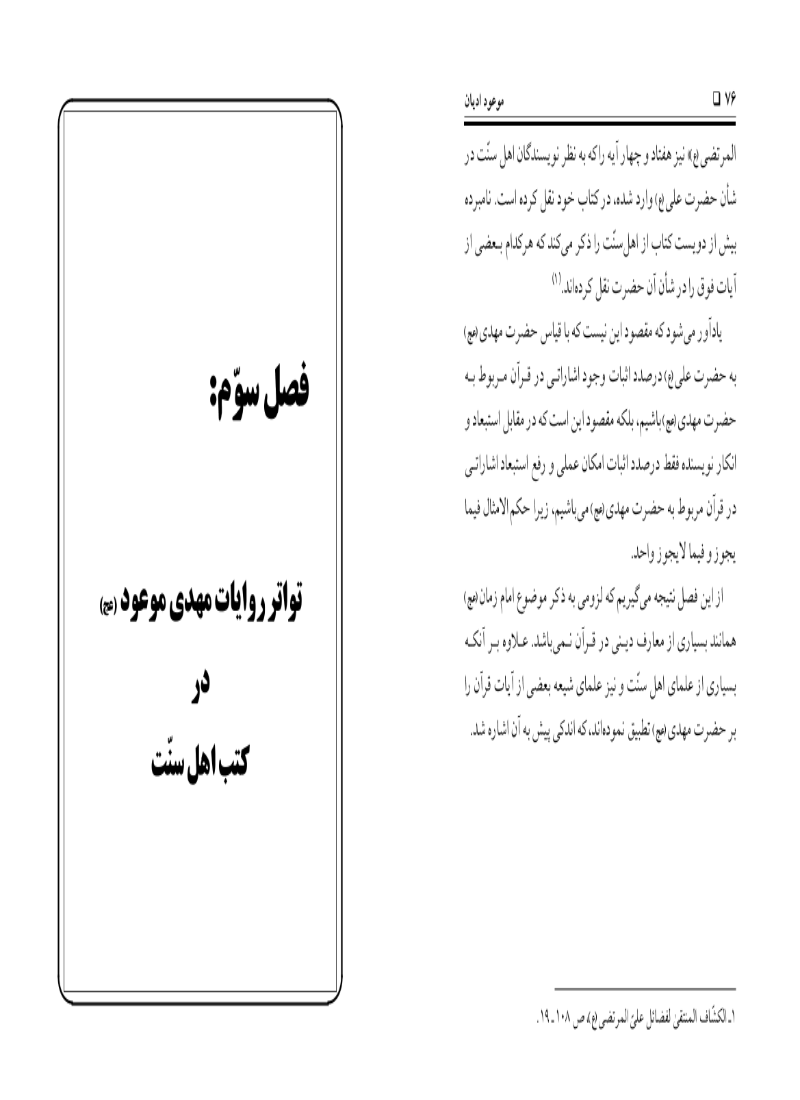 ۷۶ ❑ موعود ادیان
المرتضی(ع)» نیز هفتاد و چهار آیه را که به نظر نویسندگان اهل سنّت در
شأن حضرت علی(ع) وارد شده، در کتاب خود نقل کرده است. نامبرده
بیش از دویست کتاب از اهل‌سنّت را ذکر می‌کند که هرکدام بعضی از
آیات فوق را در شأن آن حضرت نقل کرده‌اند.(۱)
یادآور می‌شود که مقصود این نیست که با قیاس حضرت مهدی(عج)
به حضرت علی(ع) درصدد اثبات وجود اشاراتی در قرآن مربوط به
حضرت مهدی(عج) باشیم، بلکه مقصود این است که در مقابل استبعاد و
انکار نویسنده فقط درصدد اثبات امکان عملی و رفع استبعاد اشاراتی
در قرآن مربوط به حضرت مهدی(عج) می‌باشیم، زیرا حکم‌الامثال فیما
یجوز و فیما لایجوز واحد.
از این فصل نتیجه می‌گیریم که لزومی به ذکر موضوع امام زمان(عج)
همانند بسیاری از معارف دینی در قرآن نمی‌باشد. علاوه بر آنکه
بسیاری از علمای اهل سنّت و نیز علمای شیعه بعضی از آیات قرآن را
بر حضرت مهدی(عج) تطبیق نموده‌اند، که اندکی پیش به آن اشاره شد.
۱ـ الکشّاف المنتقیٰ لفضائل علیّ المرتضی(ع)، ص ۱۰۸ ـ ۱۹.
فصل سوّم:
تواتر روایات مهدی موعود (عج)
در
کتب اهل سنّت